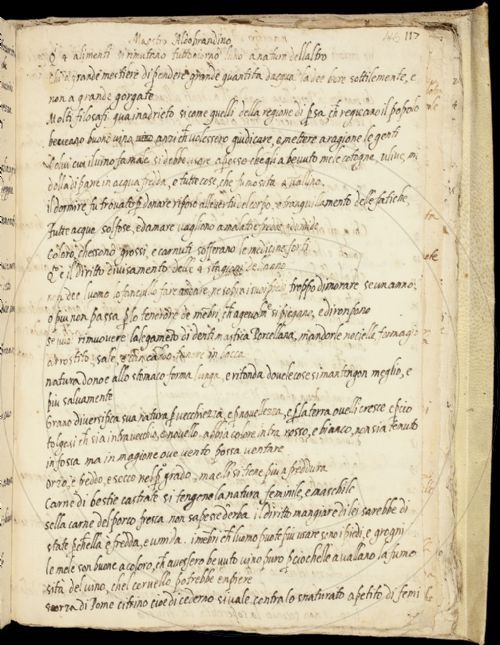 Maestro Aldobrandino
116 117
4 alimenti si rimutano tutto l'uno a natura dell'altro
Chi a grande mestiere di prendere grande quantita d'acqua la dee bere sottilemente, e
non a grande gorgate
Molti filosafi qua indrieto si come quelli della regione di Persia, ch reguano il popolo
beveano buon vino, anzi ch volessero giudicare, o mettere a ragione le genti
colui cui il vino fa male si debbe usare apresso ch egli a bevuto mele cotogne, ulive,
di pane in acqua fredda, e tutte cose, che fumosita avallino
il dormire fu trovato p donare riposo alle vertu del corpo, e tranquillamento delle fatiche,
Tutte acque solfose, ed amare vagliono a malatie fredde, e umide
Coloro, che sono grossi, e carnuti sofferano le medicine forti
Q e il diritto divisamento delle 4 stagioni dell'anno
non dee l'uomo lo fanciullo fare andare, ne sopra i suoi piedi troppo dimorare se un anno,
o piu non passa p lo tenerore de membri, ch agevolm si piegano, e dironpono
rimuovere la legamento di denti mastica Porcellana, mandorle nocielle, formaggio
arrostito, sale, e tenere in bocca
natura dono e allo stomaco forma lunga, e ritonda dove le cose si mantengon meglio, e
piu salvamente
Grano diversifica sua natura p vecchiezza, e p novellezza, e p la terra ov elli cresce e p cio
tolgasi ch sia intra vecchio, e novello, abbia colore intra rosso, e bianco, non sia tenuto
in fossa ma in magione ove vento possa ventare
orzo, e freddo, e secco nel p grado, ma elli si tiene piu a freddura
Carne di bestie castrate si tengono la natura feminile, e maschile
sella carne del porco fresca non sapesse d'erba il diritto mangiare di lei sarebbe di
state p ch ella e fredda, e umida. i menbri ch l'uomo puote piu usare sono i piedi, e grogni
le mele son buone a coloro, ch avessero bevuto vino puro p cio ch elle avallano la fumo
sita del vino, che l corvello potrebbe enpiere
scorza di Pome citrino cioe di cederno si vale contra lo snaturato apetito di femi